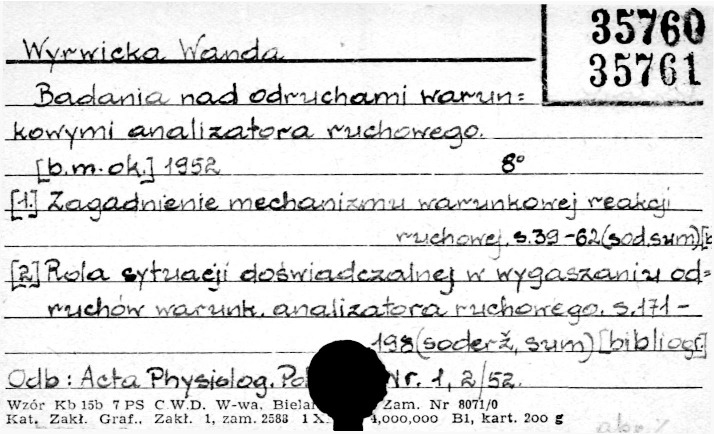 35760
35761
Wyrwicka Wanda
Badania nad odruchami warun=
kowymi analizatora ruchowego.
[b.m.ok.] 1952 8°
[1.] Zagadnienie mechanizmu warunkowej reakcji
ruchowej, s.39-62(sod,sum)[b
[2.] Rola sytuacji doświadczalnej w wygaszaniu od=
ruchów warunk. analizatora ruchowego. s.171-
198(soderž, sum)[bibliogr]
Odb: Acta Physiolog. Pol Nr. 1, 2/52.
Wzór Kb 15b 7 PS C.W.D. W-wa, Biela Zam. Nr 8071/0
Kat. Zakł. Graf., Zakł. 1, zam. 2588 1 X. 4,000,000 B1, kart. 200 g